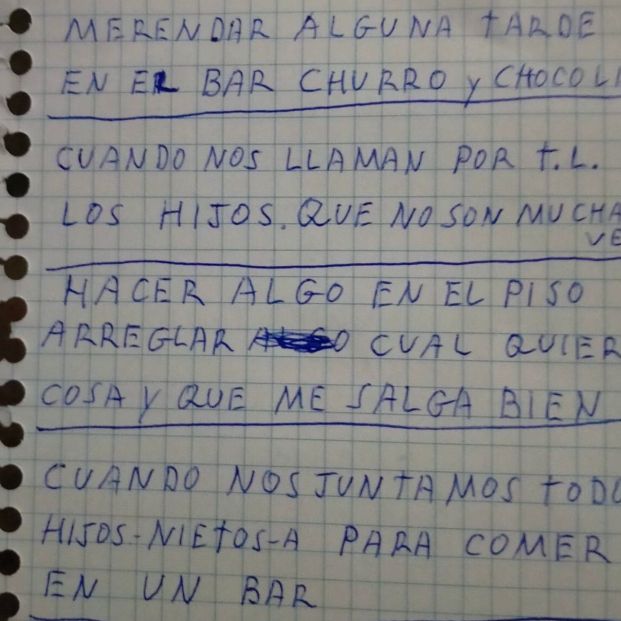 MERENDAR ALGUNA TARDE
EN EL BAR CHURRO Y
CUANDO NOS LLAMAN POR T.L.
LOS HIJOS. QUE NO SON
HACER ALGO EN EL PISO
ARREGLAR CUAL QUIER
COSA Y QUE ME SALGA BIEN
CUANDO NOS JUNTAMOS
HIJOS-NIETOS-A PARA COMER
EN UN BAR